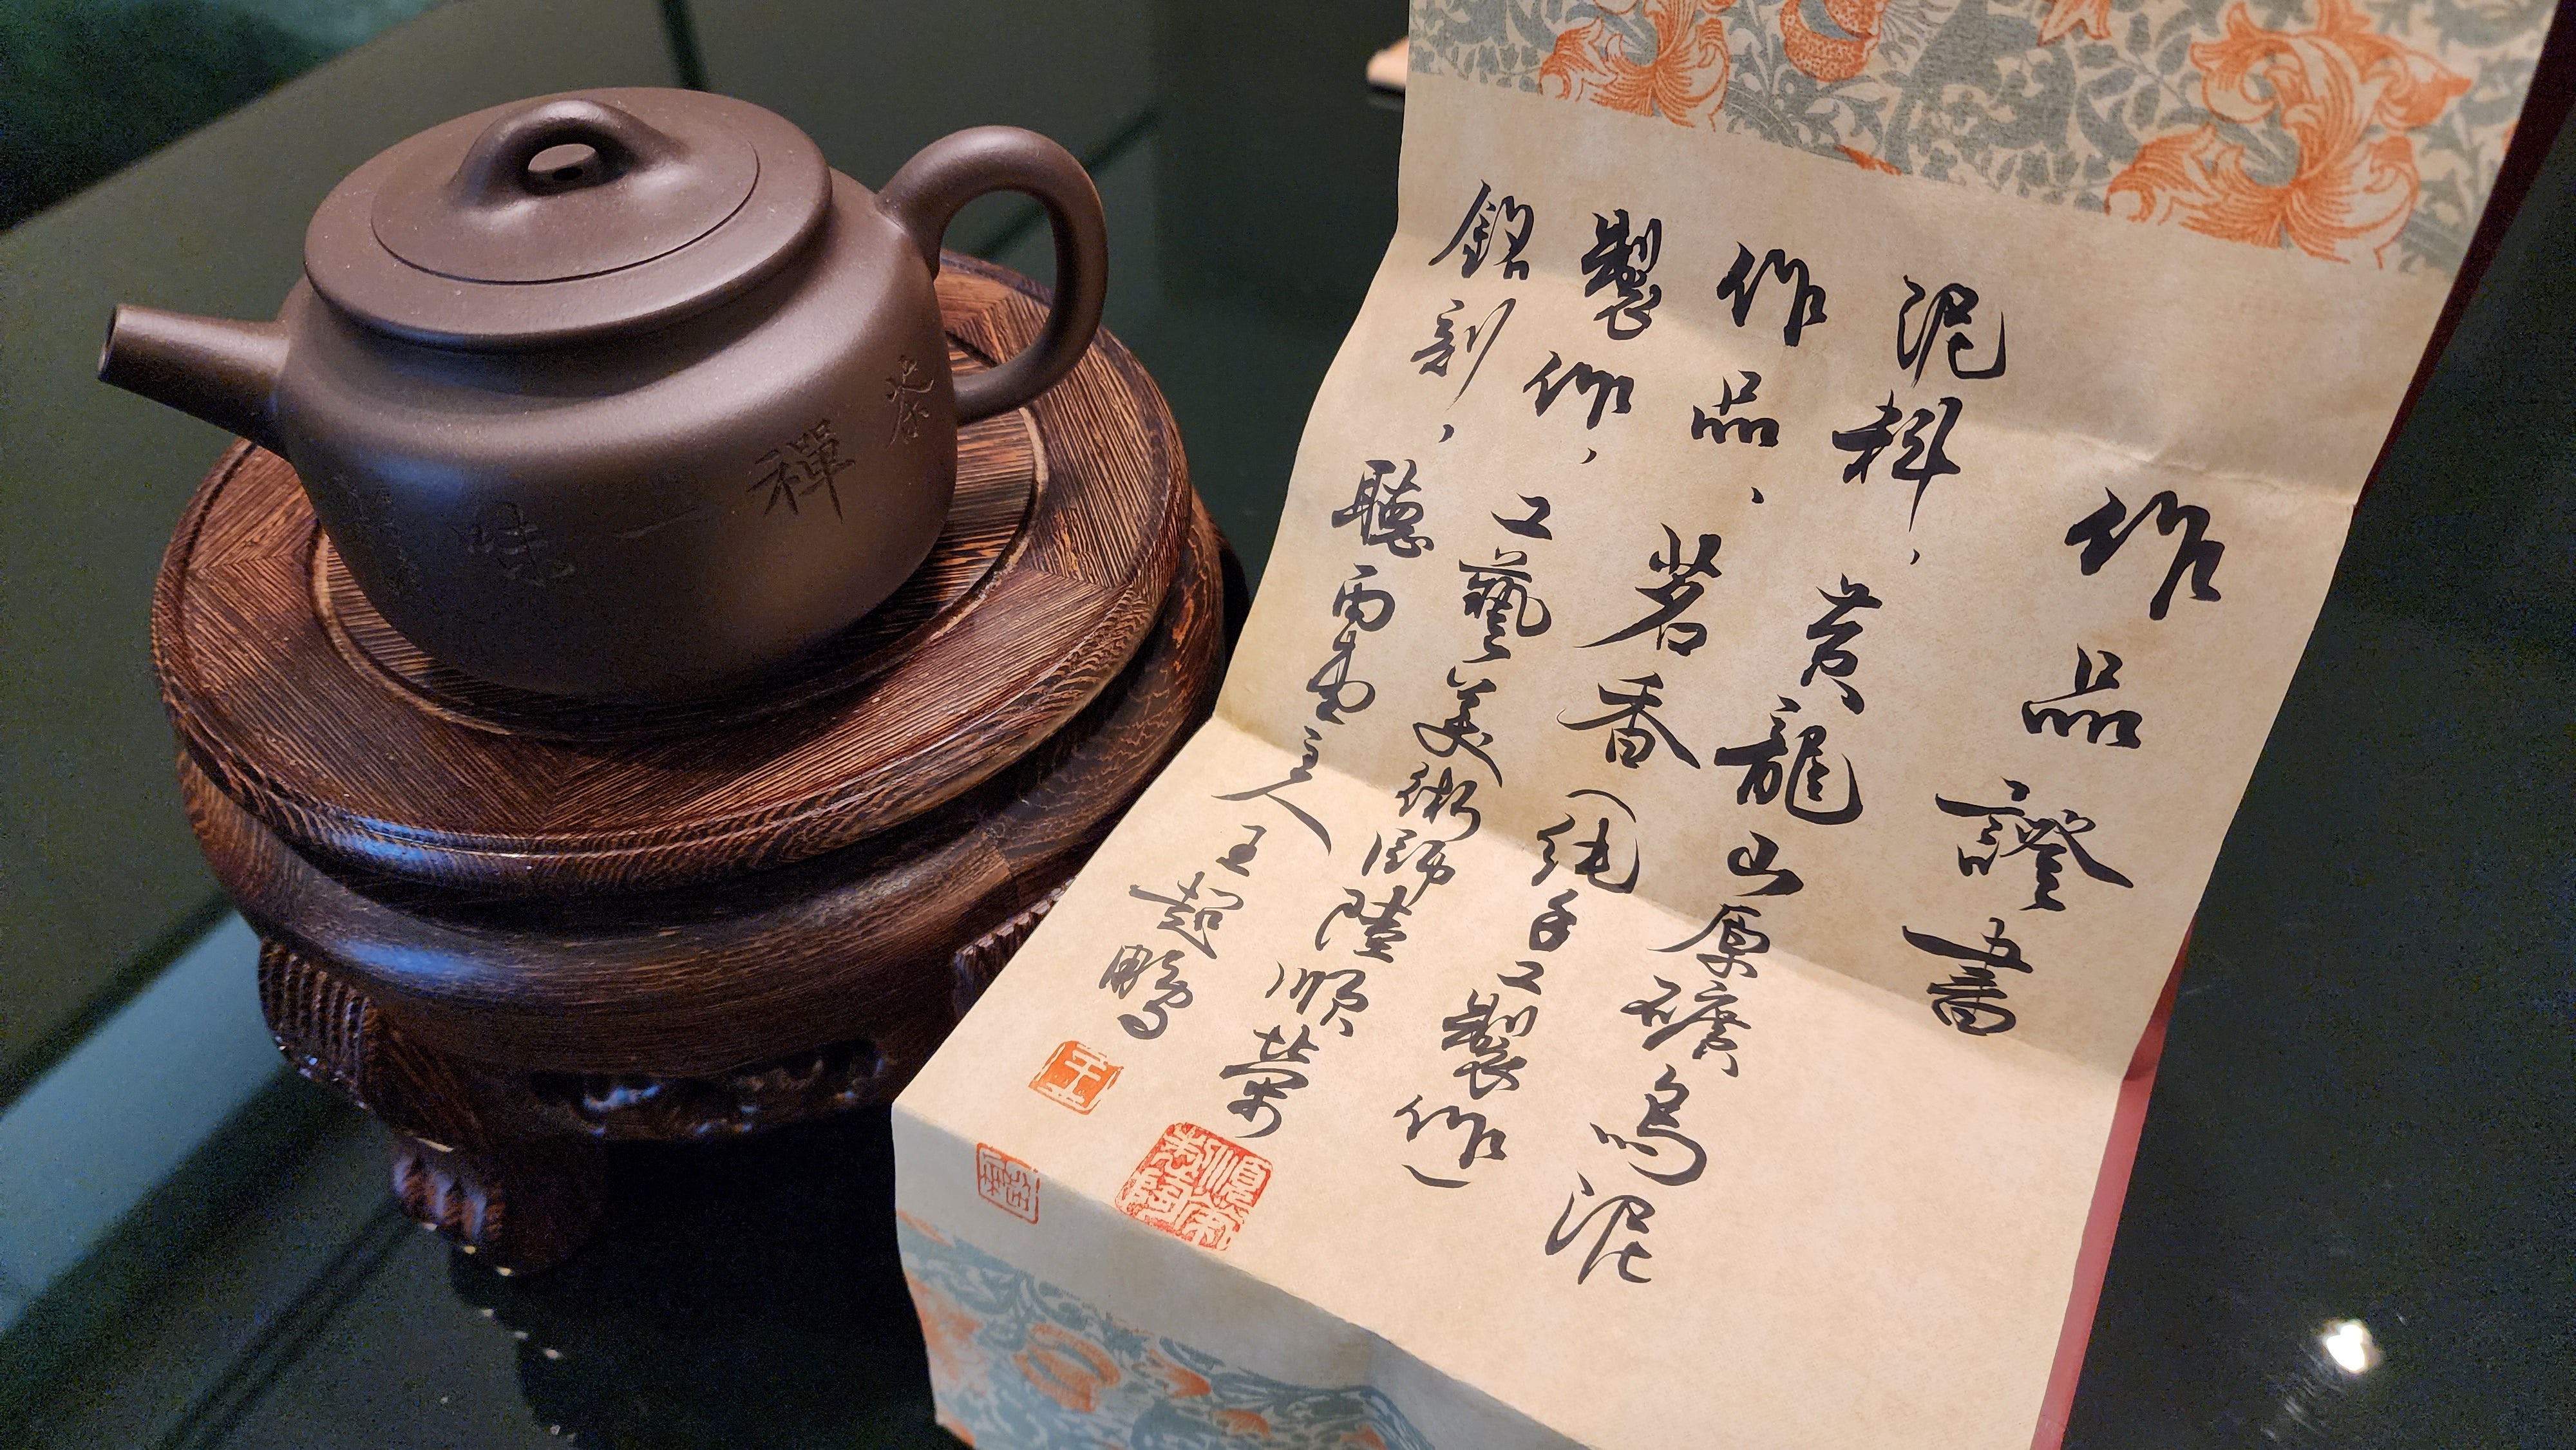 作品證書
泥料，黃龍山原礦烏泥
作品、茗香（純手工製作）
製作，工藝美術師陸順榮
銘刻，聽雨堂主人王超鵬
王
茶禪一味